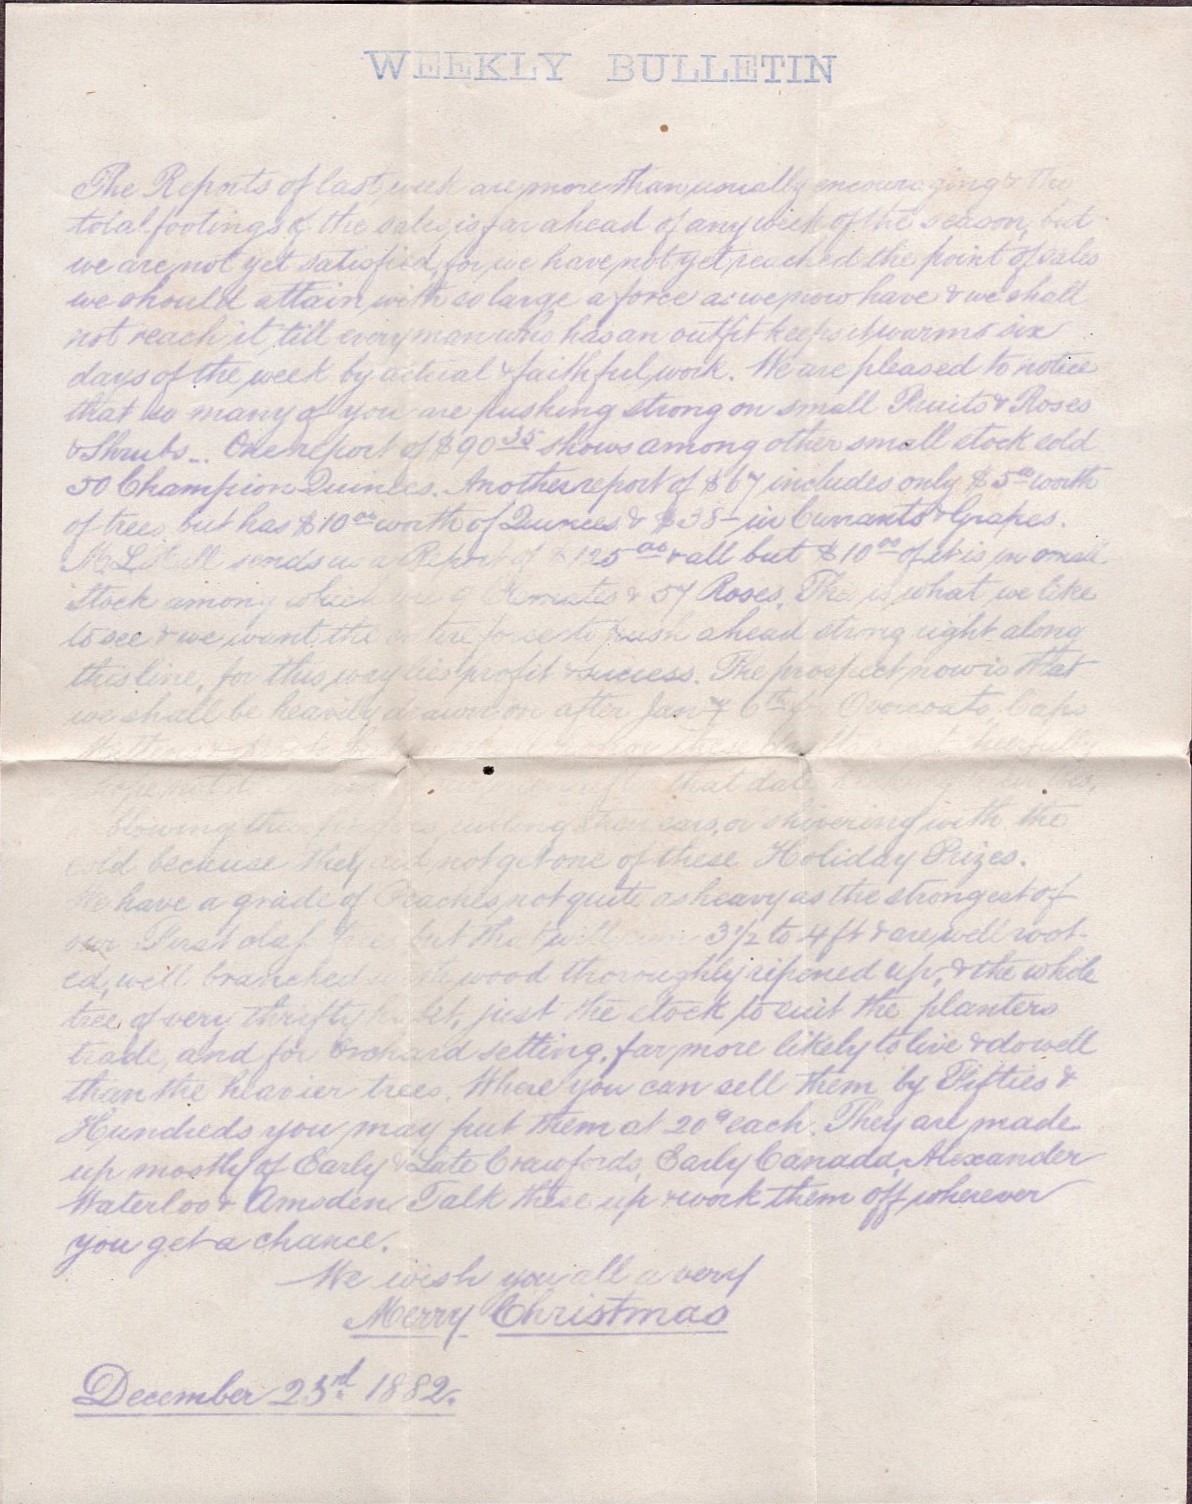 WEEKLY BULLETIN
The Reports of last week are more than usually encouraging & the
total footings of the sales is far ahead of any week of the season, but
we are not yet satisfied, for we have not yet reached the point of sales
we should attain with so large a force as we now have & we shall
not reach it, till every man who has an outfit keeps it warm six
days of the week by actual & faithful work. We are pleased to notice
that so many of you are pushing strong on small Fruits & Roses
& Shrubs_.. One report of $90 35 shows among other small stock sold
50 Champion Quinces. Another report of $67 includes only $5 00 worth
of trees but has $10 00 worth of Quinces & $38- in Currants & Grapes.
sends us a Report of $125 00 & all but $10 00 of it is in small
stock among which are Clematis & 57 Roses. This is what we like
to see & we want the entire force to push ahead strong right along
this line, for this way lies profit & success. The prospect now is that
we shall be heavily drawn on after Jan'y 6th for Overcoats, Caps
that date
blowing their fingers, rubbing their ears, or shivering with the
cold because they did not get one of these Holiday Prizes.
We have a grade of Peaches, not quite as heavy as the strongest of
our First class trees but that will run 3 1/2 to 4 ft & are well root-
ed, well branched wood thoroughly ripened up, & the whole
tree of very thrifty habit, just the stock to suit the planters
trade, and for Orchard setting, far more likely to live & do well
than the heavier trees. Where you can sell them by Fifties &
Hundreds you may put them at 20c each. They are made
up mostly of Early & Late Crawfords, Early Canada, Alexander
Waterloo & Amsden. Talk these up & work them off wherever
you get a chance.
We wish you all a very
Merry Christmas
December 23rd 1882.